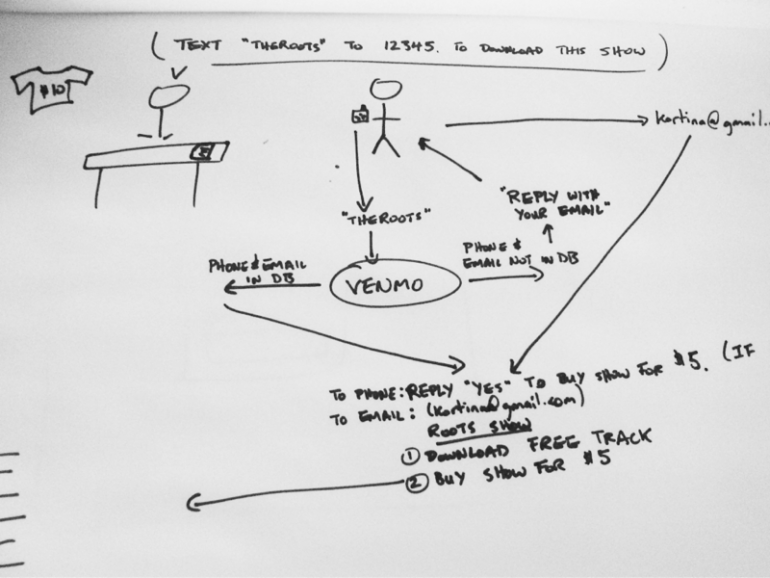 (TEXT "THEROOTS" TO 12345. TO DOWNLOAD THIS SHOW)
$10
kortina@gmail.
"REPLY WITH
YOUR EMAIL"
"THEROOTS"
PHONE & EMAIL
IN DB
VENMO
PHONE &
EMAIL NOT IN DB
TO PHONE: REPLY "YES" TO BUY SHOW FOR $5. (IF
TO EMAIL: (kortina@gmail.com)
ROOTS SHOW
① DOWNLOAD FREE TRACK
② BUY SHOW FOR $5